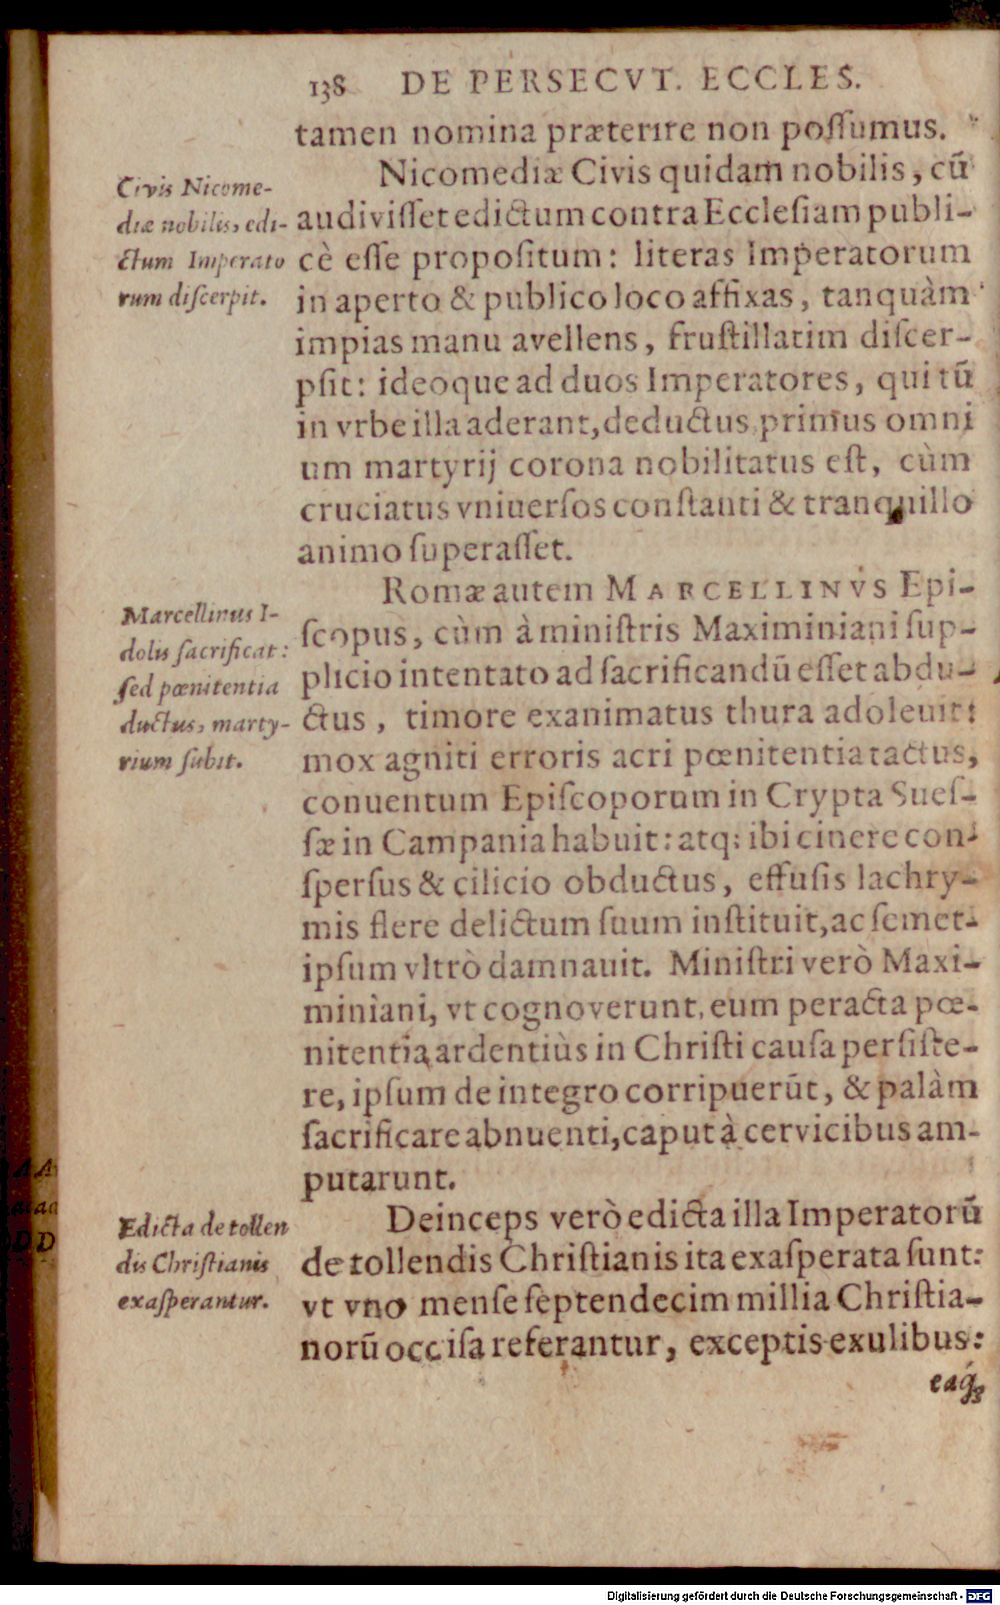 138 DE PERSECVT. ECCLES.
tamen nomina præterire non poſſumus.
Nicomediæ Civis quidam nobilis, cū
audiviſſet edictum contra Eccleſiam publi-
cè eſſe propoſitum: literas Imperatorum
in aperto & publico loco affixas, tanquàm
impias manu avellens, fruſtillatim diſcer-
pſit: ideoque ad duos Imperatores, qui tū
in vrbe illa aderant, deductus primus omni
um martyrij corona nobilitatus eſt, cùm
cruciatus vniuerſos conſtanti & tranquillo
animo ſuperaſſet.
Civis Nicome-
diæ nobilis, edi-
ctum Imperato
rum diſcerpit.
Romæ autem MARCELLINVS Epi-
ſcopus, cùm à miniſtris Maximiniani ſup-
plicio intentato ad ſacrificandū eſſet abdu-
ctus, timore exanimatus thura adoleuit:
mox agniti erroris acri pœnitentia tactus,
conuentum Epiſcoporum in Crypta Sueſ-
ſæ in Campania habuit: atq; ibi cinere con-
ſperſus & cilicio obductus, effuſis lachry-
mis flere delictum ſuum inſtituit, ac ſemet-
ipſum vltrò damnauit. Miniſtri verò Maxi-
miniani, vt cognoverunt, eum peracta pœ-
nitentia ardentiùs in Chriſti cauſa perſiſte-
re, ipſum de integro corripuerūt, & palàm
ſacrificare abnuenti, caput à cervicibus am-
putarunt.
Marcellinus I-
dolis ſacrificat:
ſed pœnitentia
ductus, marty-
rium ſubit.
Deinceps verò edicta illa Imperatorū
de tollendis Chriſtianis ita exaſperata ſunt:
vt vno menſe ſeptendecim millia Chriſtia-
norū occiſa referantur, exceptis exulibus:
Edicta de tollen
dis Chriſtianis
exaſperantur.
eaq́;
Digitalisierung gefördert durch die Deutsche Forschungsgemeinschaft - DFG